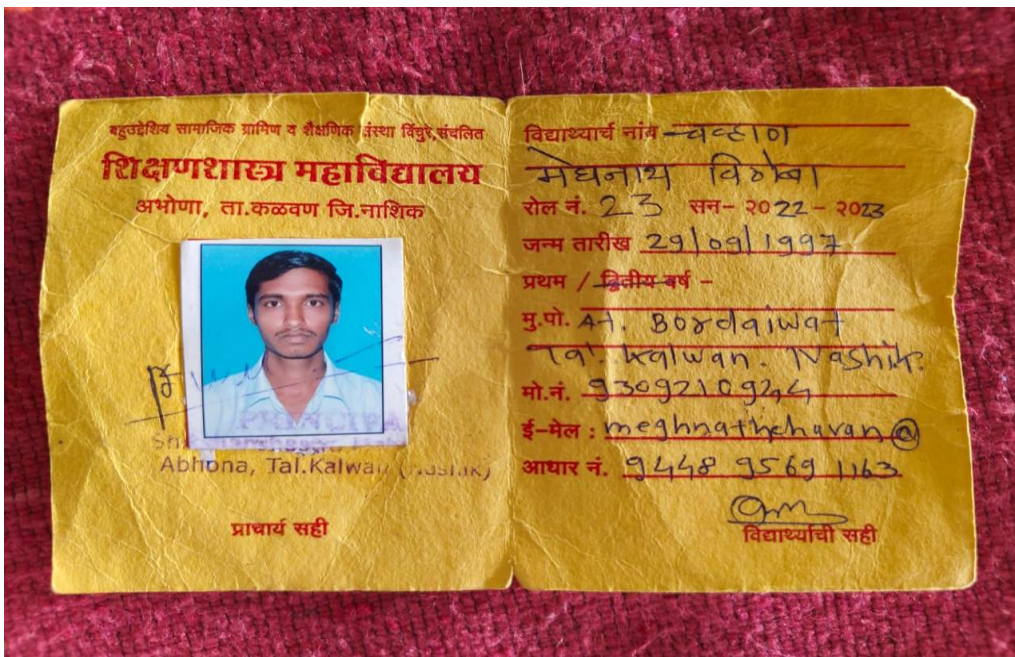 बहुउद्देशिय सामाजिक ग्रामिण व शैक्षणिक संस्था विंचुर, संचलित
शिक्षणशास्त्र महाविद्यालय
अभोणा, ता.कळवण जि.नाशिक
Abhona, Tal.Kalwan (Nashik)
प्राचार्य सही
विद्यार्थ्याचे नांव चव्हाण
मेघनाथ विठोबा
रोल नं. 23 सन- २०22 - २०23
जन्म तारीख 29/09/1997
प्रथम / द्वितीय वर्ष -
मु.पो. At. Bordaiwat
Tal. Kalwan. Nashik.
मो.नं. 9309210924
ई-मेल : meghnathchavan@
आधार नं. 9448 9569 1163
विद्यार्थ्याची सही